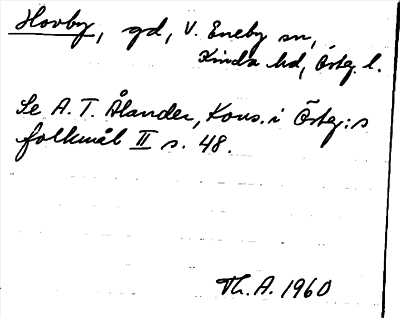 Hovby, gd, V. Eneby sn,
Kinda hd, Östg. l.
Se A. T. Ålander, Kons. i Östg:s
folkmål II s. 48.
Th. A. 1960